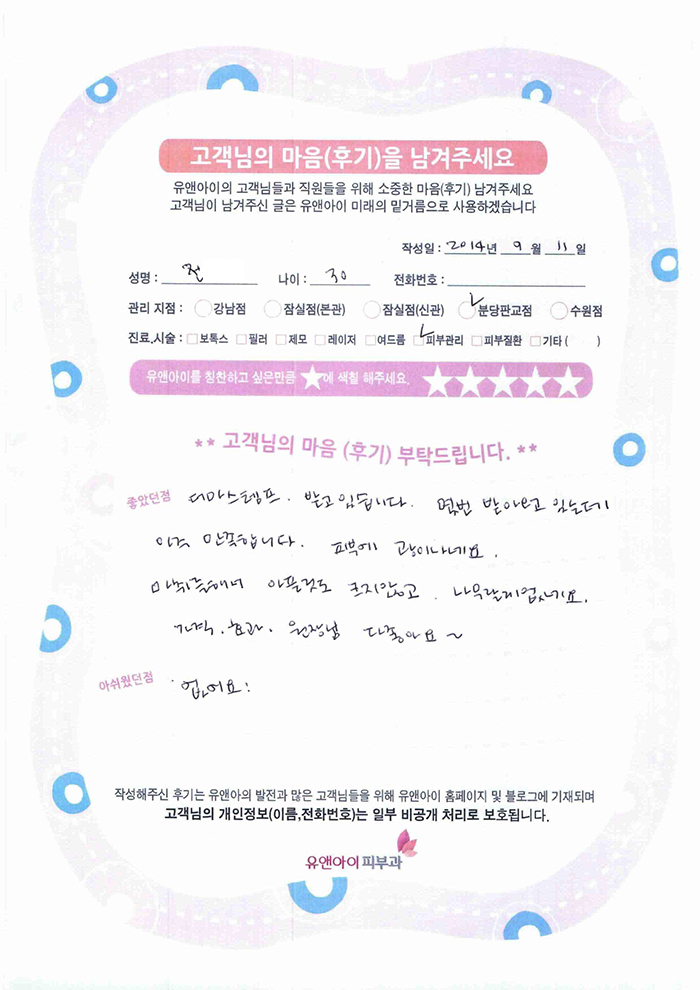 고객님의 마음(후기)을 남겨주세요
유앤아이의 고객님들과 직원들을 위해 소중한 마음(후기) 남겨주세요
고객님이 남겨주신 글은 유앤아이 미래의 밑거름으로 사용하겠습니다
작성일 : 2014년 9월 11일
성명 : 전 나이 : 30 전화번호 :
관리 지점 : 강남점 잠실점(본관) 잠실점(신관) 분당판교점 수원점
진료.시술 : 보톡스 필러 제모 레이저 여드름 피부관리 피부질환 기타 ( )
유앤아이를 칭찬하고 싶은만큼 ★에 색칠 해주세요. ★★★★★
** 고객님의 마음 (후기) 부탁드립니다. **
좋았던점 더마스템프. 받고있습니다. 몇번 받아보고 있는데
아주 만족합니다. 피부에 광이나네요.
마취를해서 아픈것도 크지않고. 나무랄게없네요.
가격. 효과. 원장님 다좋아요~
아쉬웠던점 없어요!
작성해주신 후기는 유앤아의 발전과 많은 고객님들을 위해 유앤아이 홈페이지 및 블로그에 기재되며
고객님의 개인정보(이름,전화번호)는 일부 비공개 처리로 보호됩니다.
유앤아이피부과